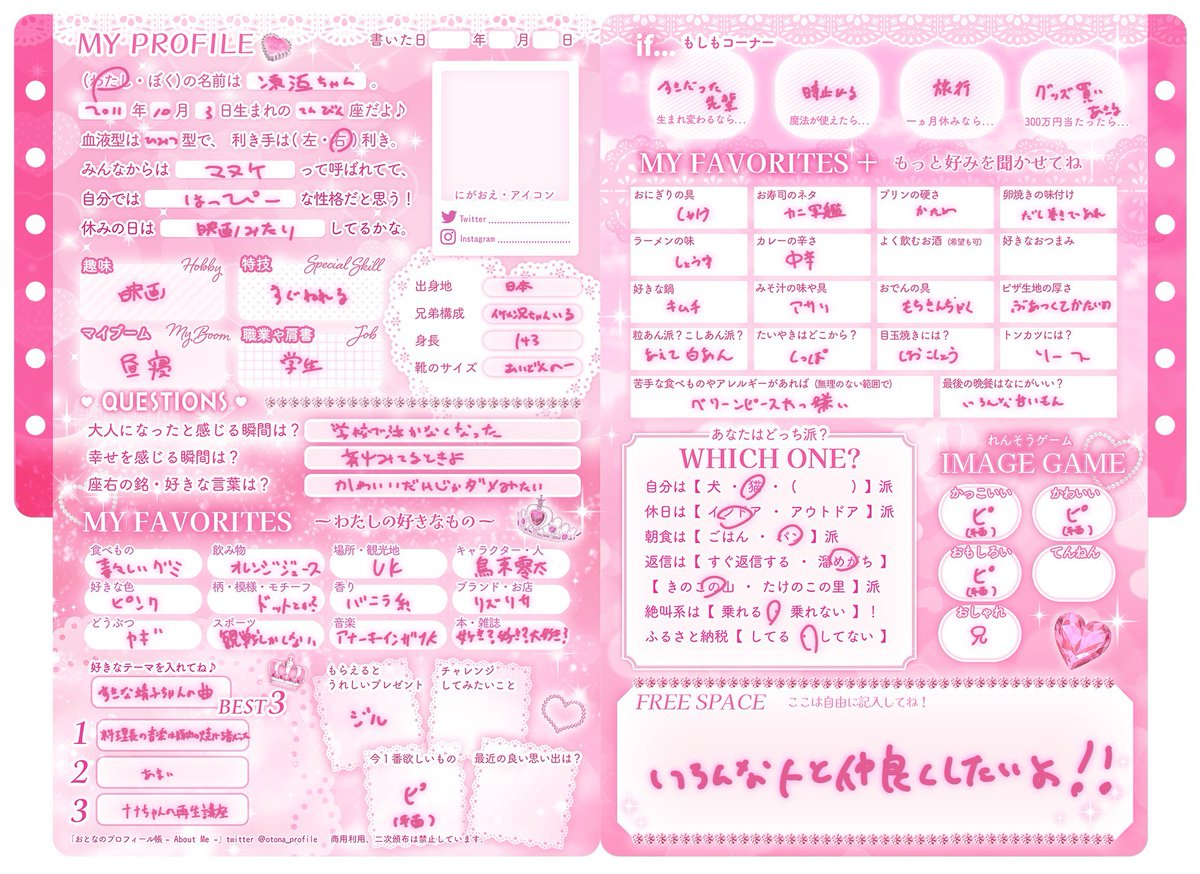 MY PROFILE
書いた日 年 月 日
(わたし・ぼく)の名前は 凍浜ちゃん 。
2011 年 10 月 3 日生まれの てんびん 座だよ♪
血液型は ひみつ 型で、 利き手は(左・右)利き。
みんなからは マヌケ って呼ばれてて、
自分では はっぴー な性格だと思う!
休みの日は 映画みたり してるかな。
にがおえ・アイコン
Twitter
Instagram
趣味 Hobby
映画
特技 Special Skill
すぐねれる
マイブーム My Boom
昼寝
職業や肩書 Job
学生
出身地 日本
兄弟構成 兄ちゃんいる
身長 143
靴のサイズ あいどんのー
QUESTIONS
大人になったと感じる瞬間は? 学校で泣かなくなった
幸せを感じる瞬間は?
座右の銘・好きな言葉は? かわいいだけじゃダメみたい
MY FAVORITES ～わたしの好きなもの～
食べもの
グミ
飲み物
オレンジジュース
場所・観光地
UK
キャラクター・人
好きな色
ピンク
柄・模様・モチーフ
ドットとか?
香り
バニラ系
ブランド・お店
リズリサ
どうぶつ
ヤギ
スポーツ
観戦しかしない
音楽
アナーキーインザ
本・雑誌
好き?好き?大好き?
好きなテーマを入れてね♪
すきな靖子ちゃんの曲
BEST3
1 料理長の音楽は豚肉の焼ける
2 あまい
3 ナナちゃんの再生講座
もらえるとうれしいプレゼント
ジル
チャレンジしてみたいこと
今1番欲しいもの
ピ
最近の良い思い出は?
「おとなのプロフィール帳 - About Me -」twitter @otona_profile 商用利用、二次頒布は禁止しています。
if... もしもコーナー
すきだった先輩
生まれ変わるなら...
時止める
魔法が使えたら...
旅行
一ヵ月休みなら...
グッズ買い
300万円当たったら...
MY FAVORITES + もっと好みを聞かせてね
おにぎりの具
しゃけ
お寿司のネタ
カニ軍艦
プリンの硬さ
かため
卵焼きの味付け
だし巻きであれ
ラーメンの味
しょうゆ
カレーの辛さ
中辛
よく飲むお酒(希望も可)
好きなおつまみ
好きな鍋
キムチ
みそ汁の味や具
アサリ
おでんの具
もちきんちゃく
ピザ生地の厚さ
ぶあつくてかたいの
粒あん派?こしあん派?
あえて白あん
たいやきはどこから?
しっぽ
目玉焼きには?
しおこしょう
トンカツには?
ソース
苦手な食べものやアレルギーがあれば(無理のない範囲で)
最後の晩餐はなにがいい?
いろんな甘いもん
あなたはどっち派?
WHICH ONE?
自分は【 犬 ・ 猫 ・ ( ) 】派
休日は【 インドア ・ アウトドア 】派
朝食は【 ごはん ・ パン 】派
返信は【 すぐ返信する ・ 溜めがち 】
【 きのこの山 ・ たけのこの里 】派
絶叫系は【 乗れる ・ 乗れない 】!
ふるさと納税【 してる ・ してない 】
れんそうゲーム
IMAGE GAME
かっこいい
ピ
かわいい
ピ
おもしろい
ピ
てんねん
おしゃれ
兄
FREE SPACE ここは自由に記入してね!
いろんな人と仲良くしたいよ!!